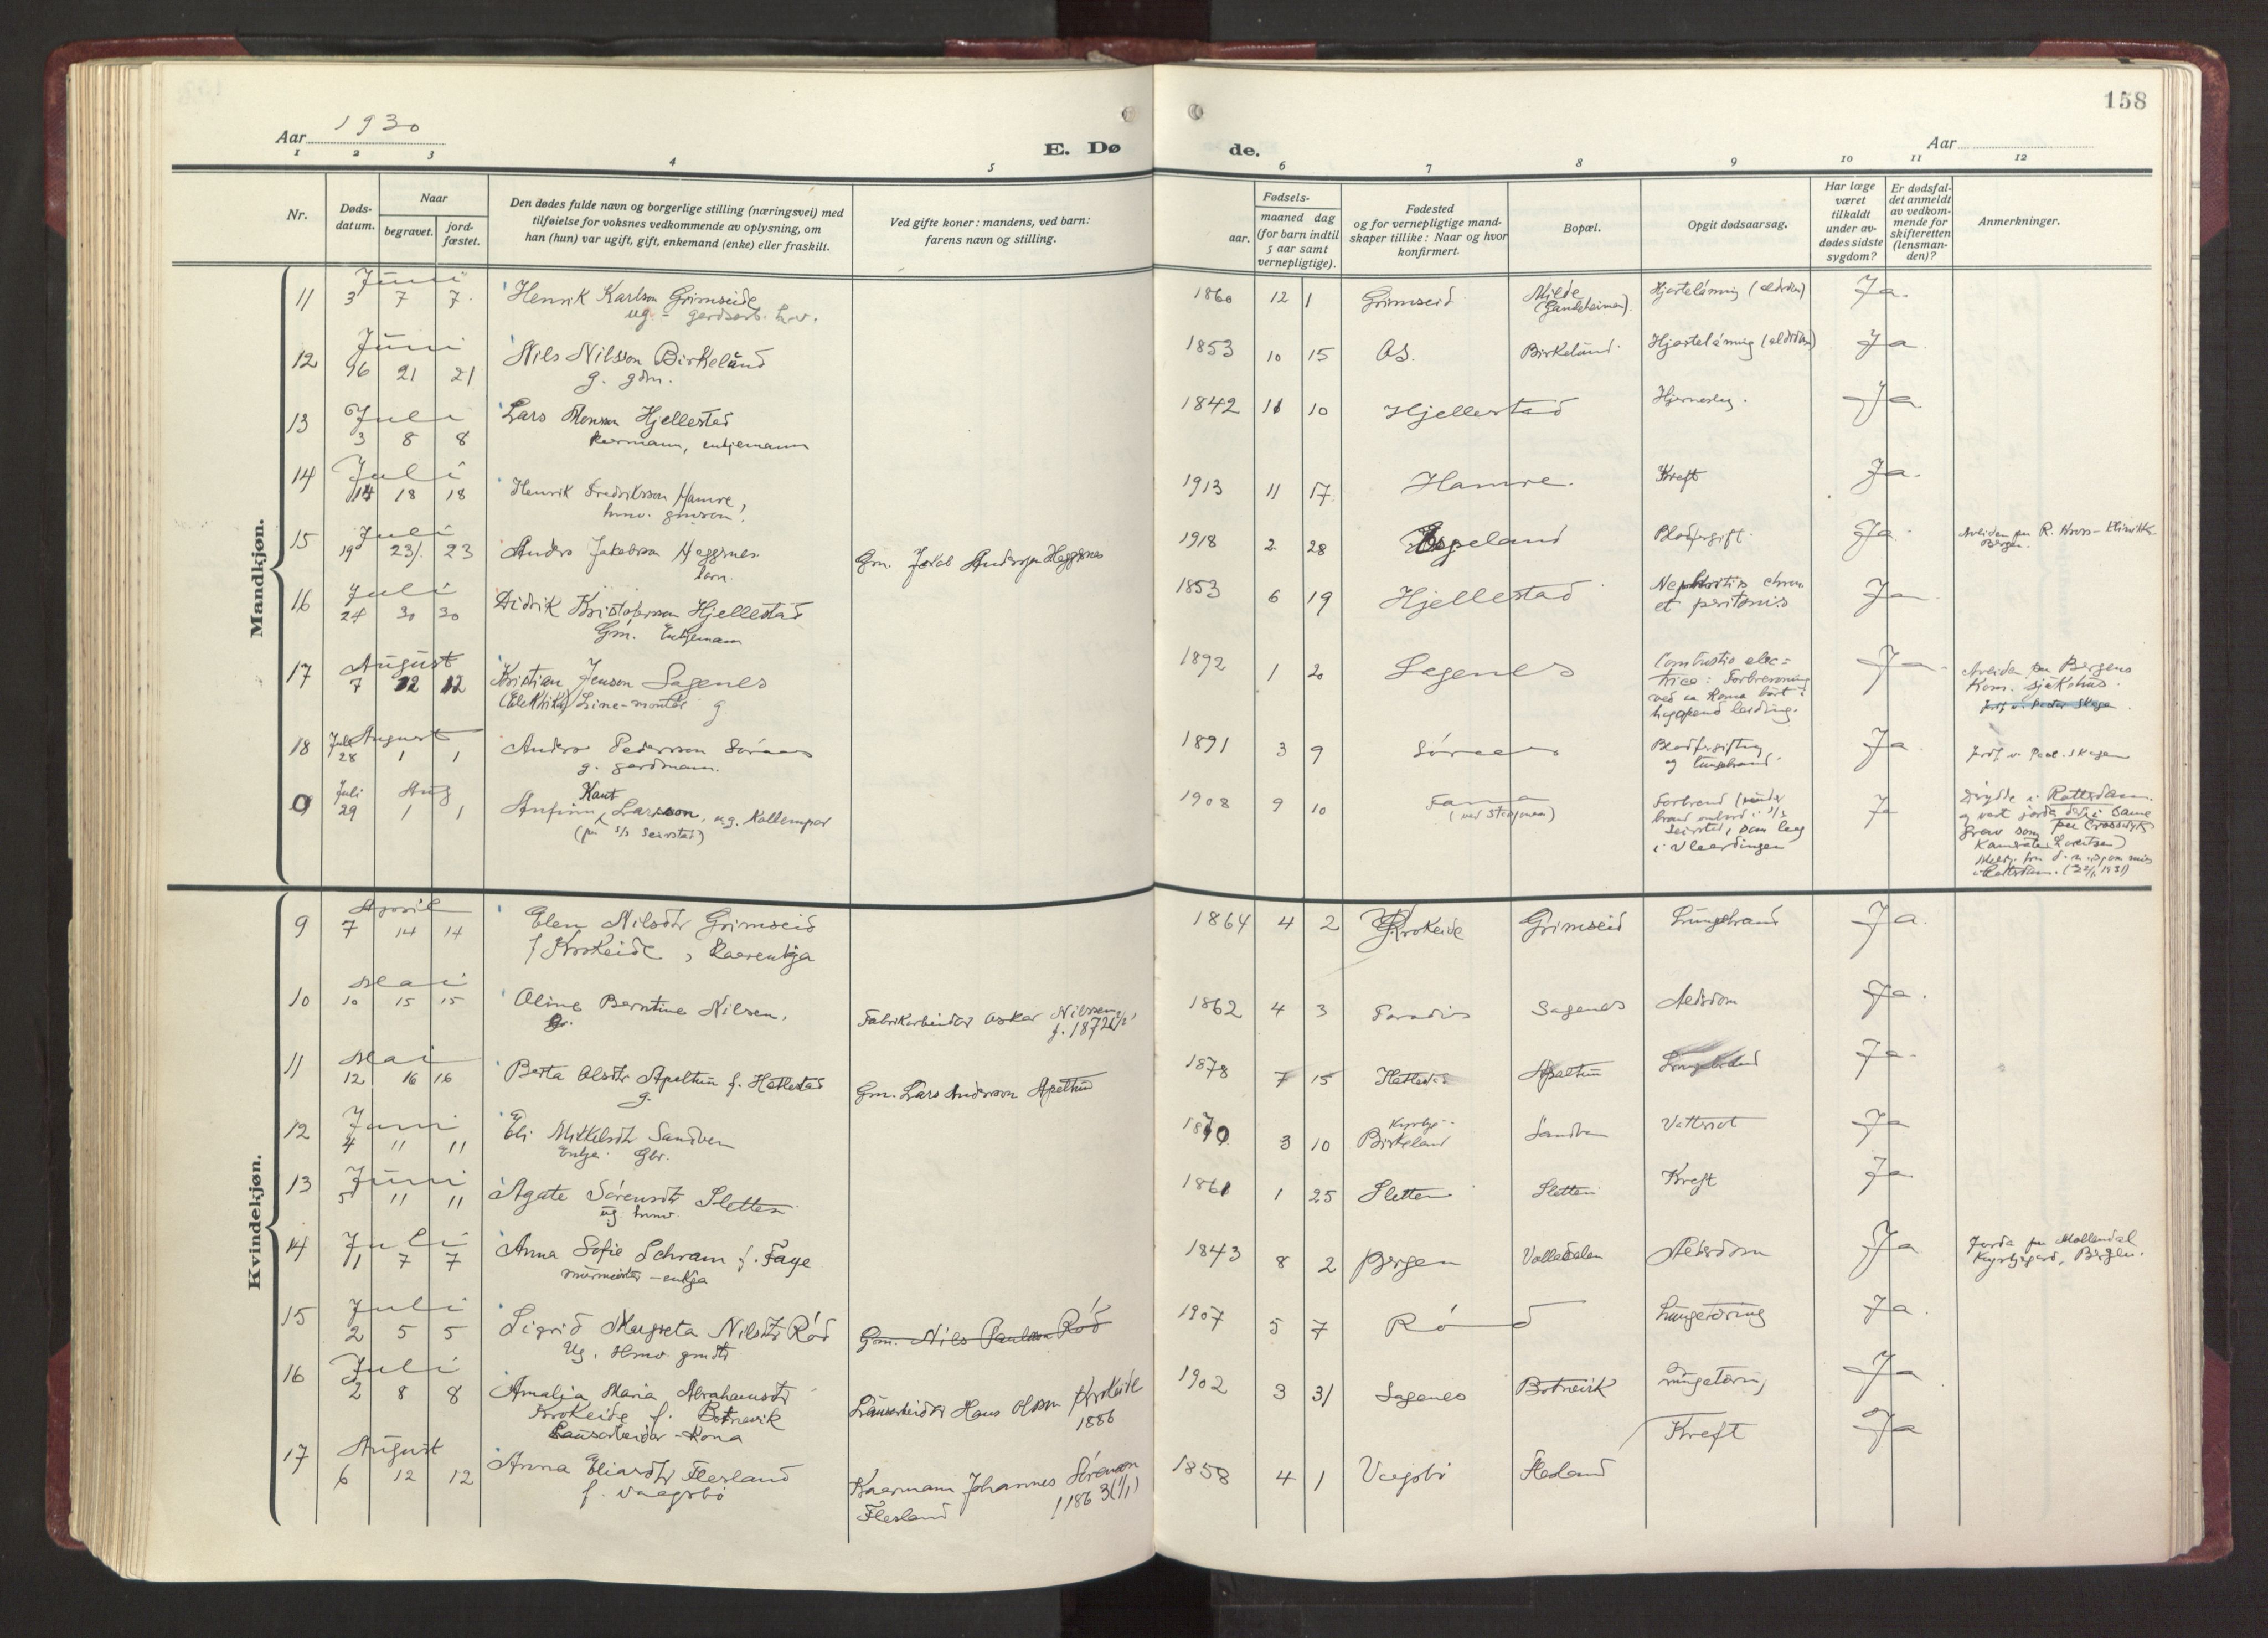 158
Aar 1930
E. Dø
de.
Aar
1 2 3 4 5 6 7 8 9 10 11 12
Nr.
Døds-
datum.
Naar
begravet.
jord-
fæstet.
Den dødes fulde navn og borgerlige stilling (næringsvei) med
tilføielse for voksnes vedkommende av oplysning, om
han (hun) var ugift, gift, enkemand (enke) eller fraskilt.
Ved gifte koner: mandens, ved barn:
farens navn og stilling.
Fødsels-
aar.
maaned dag
(for barn indtil
5 aar samt
vernepligtige).
Fødested
og for vernepligtige mand-
skaper tillike: Naar og hvor
konfirmert.
Bopæl.
Opgit dødsaarsag.
Har læge
været
tilkaldt
under av-
dødes sidste
sygdom?
Er dødsfal-
det anmeldt
av vedkom-
mende for
skifteretten
(lensman-
den)?
Anmerkninger.
Mandkjøn.
11 Juni 3 7 7. Henrik Karlson Grimseide
ug. -
1860 12 1 Grimseid Milde Hjartelaming (aldrdom) Ja.
12 Juni 16 21 21 Nils Nilsson Birkeland
g. gdm.
1853 10 15 Os. Birkeland Hjartelaming (aldrdom) Ja
13 Juli 3 8 8 Lars Monsson Hjellestad
kaarmann, enkjemann
1842 11 10 Hjellestad Hjerneslag. Ja
14 Juli 14 18 18 Henrik Fredriksson Hamre
hmv. gmson
1913 11 17 Hamre. Kreft Ja.
15 Juli 19 23 23 Anders Jakobsson Heggnes
barn.
Gm. Jakob Andersson Heggnes
1918 2 28 Espeland Blodforgift. Ja
Bergen.
16 Juli 24 30 30 Didrik Kristoferson Hjellestad
Gm. Enkjemann
1853 6 19 Hjellestad Nephritis chron.
et Ja
17 August 7 12 12 Kristian Jenson Sagenes
(Elektriker) Line-montør g
1892 1 20 Sagenes Combustio elec=
trica: Forbrenning
ved aa koma bort i
leiding.
Ja
Avliden paa Bergens
Kom. sjukehus.
18 Juli August 28 1 1 Anders Pedersson Søraas
g. gardmann.
1891 3 9 Søraas Blodforgiftning
og lungebrand Ja
0 Juli Aug 29 1 1 Knut
Anfinn Larsson, ug.
(paa s/s Seirstad)
1908 9 10 Fana
Forbrend (under
brand ombord i s/s
Seirstad, som laag
i Vlaardingen Ja
Døydde i Rotterdam
og vart jorda der i same
grav som
Kvindekjøn.
9 April 7 14 14 Elen Nilsdtr Grimseid
f. Krokeide, kaarenkja
1864 4 2 Krokeide Grimseid Lungebrand Ja.
10 Mai 10 15 15 Oline Berntine Nilsen.
Fabrikarbeidar Oskar Nilssen
f. 1872
1862 4 3 Paradis Sagenes Aldrdom Ja.
11 Mai 12 16 16 Berta Olsdtr Apeltun f. Hatlestad
g.
Gm. Lars Andersson Apeltun
1878 7 15 Hatlestad Apeltun Ja.
12 Juni 4 11 11 Eli Mikkelsdtr Sandven
Enkja. Gbr.
1870 3 10 Kyrkje-
Birkeland Sandven Vattersot Ja
13 Juni 5 11 11 Agate Sørensdtr Sletten
ug. hmv.
1861 1 25 Sletten Sletten Kreft Ja
14 Juli 1 7 7 Anna Sofie Schram f. Faye
murmeister-enkja
1843 8 2 Bergen Aldrdom Ja
Jorda paa Møllendal
Kyrkjegard, Bergen.
15 Juli 2 5 5 Sigrid Margreta Nilsdtr Rød
Ug. Hmv. gmdtr
Gm. Nils Paulson Rød
1907 5 7 Rød Lungetæring Ja.
16 Juli 2 8 8 Amalia Maria Abrahamsdtr
Krokeide f. Botnevik
Lausarbeidar-kona
Lausarbeidar Hans Olson Krokeide
1886
1902 3 31 Sagenes Botnevik Lungetæring Ja
17 August 6 12 12 Anna Eliasdtr Flesland
f. Vaagsbø
Kaarmann Johannes Sørenson
Flesland f 1863 (1/1)
1858 4 1 Vaagsbø Flesland Kreft Ja